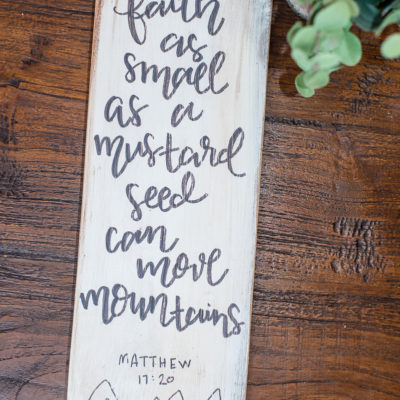 faith
as
small
as a
mustard
seed
can
move
mountains
MATTHEW
17:20